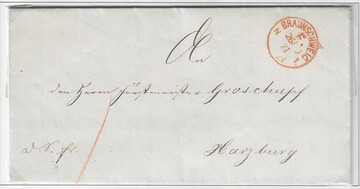 BRAUNSCHWEIG
An
den Herrn Forstmeister Groschupf
Harzburg